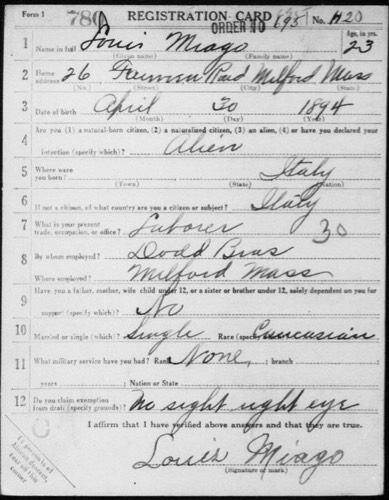 Form 1
780 REGISTRATION CARD No. 420
ORDER NO 695
1 Name in full Louis Miago Age, in yrs.
(Given name) (Family name) 23
2 Home address 26 Road Milford Mass
(No.) (Street) (City) (State)
3 Date of birth April 30 1894
(Month) (Day) (Year)
4 Are you (1) a natural-born citizen, (2) a naturalized citizen, (3) an alien, (4) or have you declared your
intention (specify which)? Alien
5 Where were you born? Italy
(Town) (State) (Nation)
6 If not a citizen, of what country are you a citizen or subject? Italy
7 What is your present trade, occupation, or office? Laborer 30
8 By whom employed? Dodd Bros
Where employed? Milford Mass
9 Have you a father, mother, wife child under 12, or a sister or brother under 12, solely dependent on you for
support (specify which)? No
10 Married or single (which)? Single Race (specify which)? Caucasian
11 What military service have you had? Rank None ; branch
years ; Nation or State
12 Do you claim exemption from draft (specify grounds)? No sight right eye
I affirm that I have verified above answers and that they are true.
Louis Miago
(Signature or mark)
If person is
of African descent,
tear off this
corner